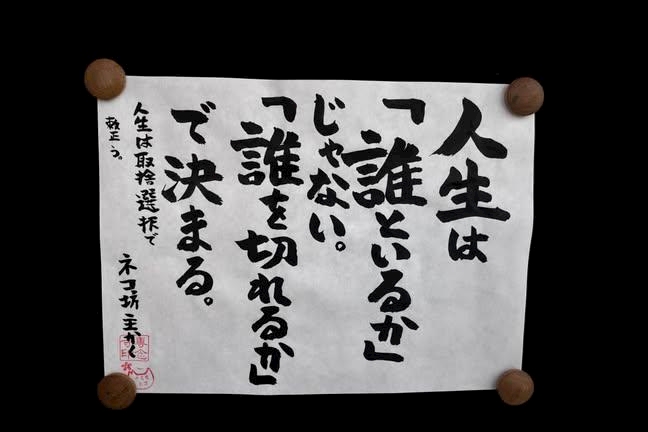 人生は
「誰といるか」
じゃない。
「誰を切れるか」
で決まる。
人生は取捨選択で
ネコ坊主かく